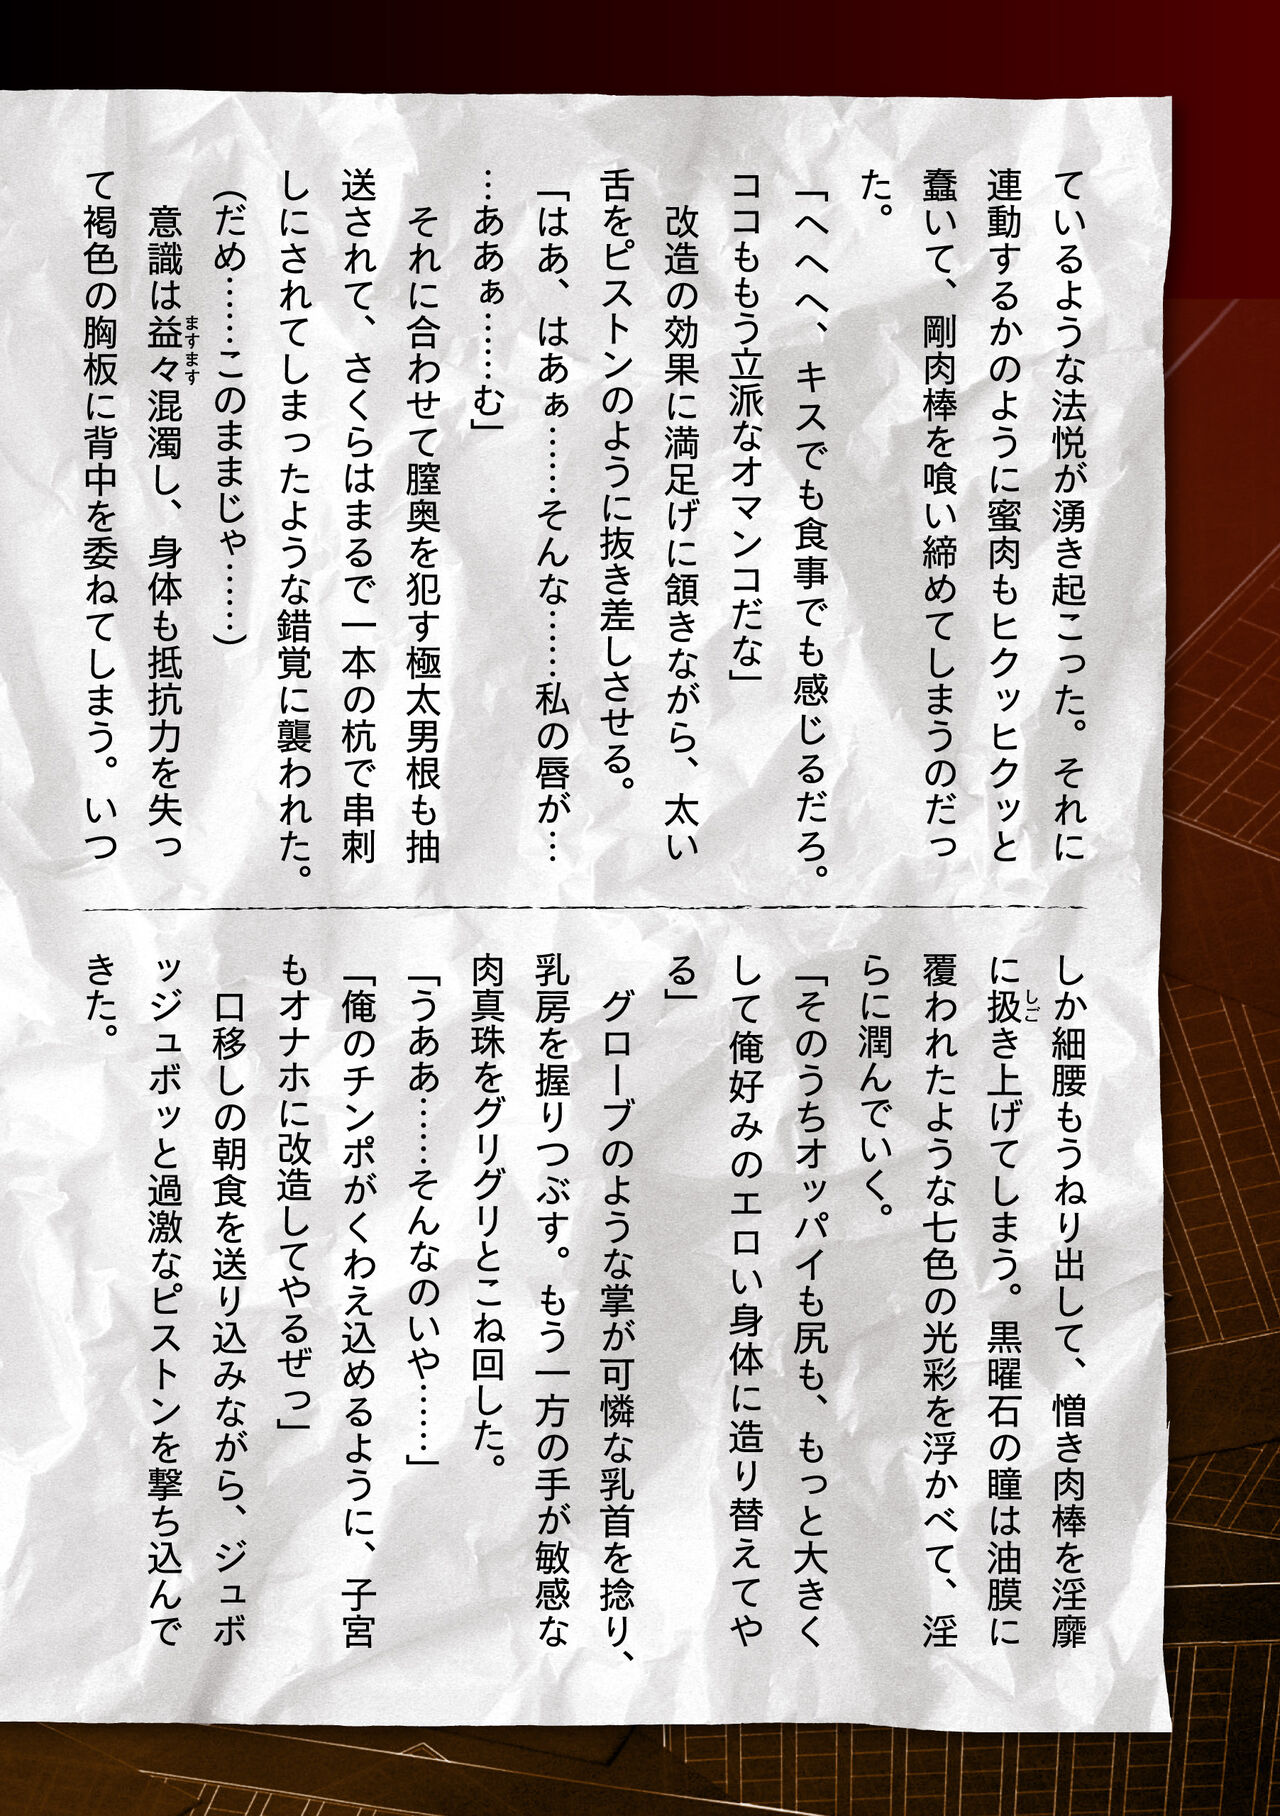 ているような法悦が湧き起こった。それに
連動するかのように蜜肉もヒクッヒクッと
蠢いて、剛肉棒を喰い締めてしまうのだっ
た。
「へへへ、キスでも食事でも感じるだろ。
ココももう立派なオマンコだな」
　改造の効果に満足げに頷きながら、太い
舌をピストンのように抜き差しさせる。
「はあ、はあぁ……そんな……私の唇が…
…ああぁ……む」
　それに合わせて膣奥を犯す極太男根も抽
送されて、さくらはまるで一本の杭で串刺
しにされてしまったような錯覚に襲われた。
（だめ……このままじゃ……）
　意識は益々ますます混濁し、身体も抵抗力を失っ
て褐色の胸板に背中を委ねてしまう。いつ
しか細腰もうねり出して、憎き肉棒を淫靡
に扱しごき上げてしまう。黒曜石の瞳は油膜に
覆われたような七色の光彩を浮かべて、淫
らに潤んでいく。
「そのうちオッパイも尻も、もっと大きく
して俺好みのエロい身体に造り替えてや
る」
　グローブのような掌が可憐な乳首を捻り、
乳房を握りつぶす。もう一方の手が敏感な
肉真珠をグリグリとこね回した。
「うああ……そんなのいや……」
「俺のチンポがくわえ込めるように、子宮
もオナホに改造してやるぜっ」
　口移しの朝食を送り込みながら、ジュボ
ッジュボッと過激なピストンを撃ち込んで
きた。